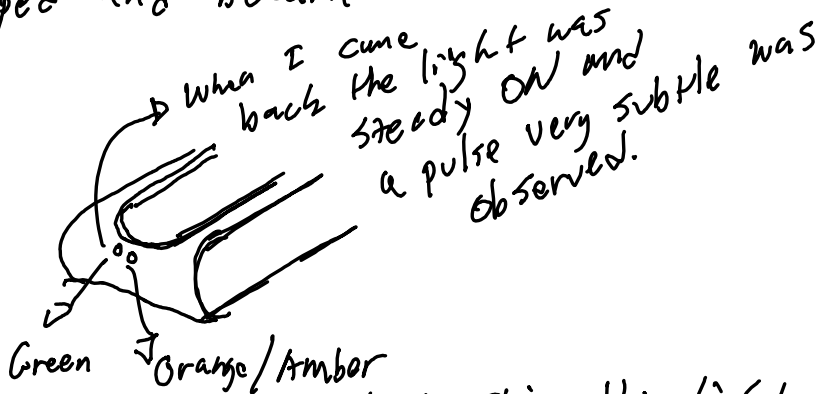 When I came
back the light was
steady ON and
a pulse very subtle was
observed.
Green
Orange/Amber